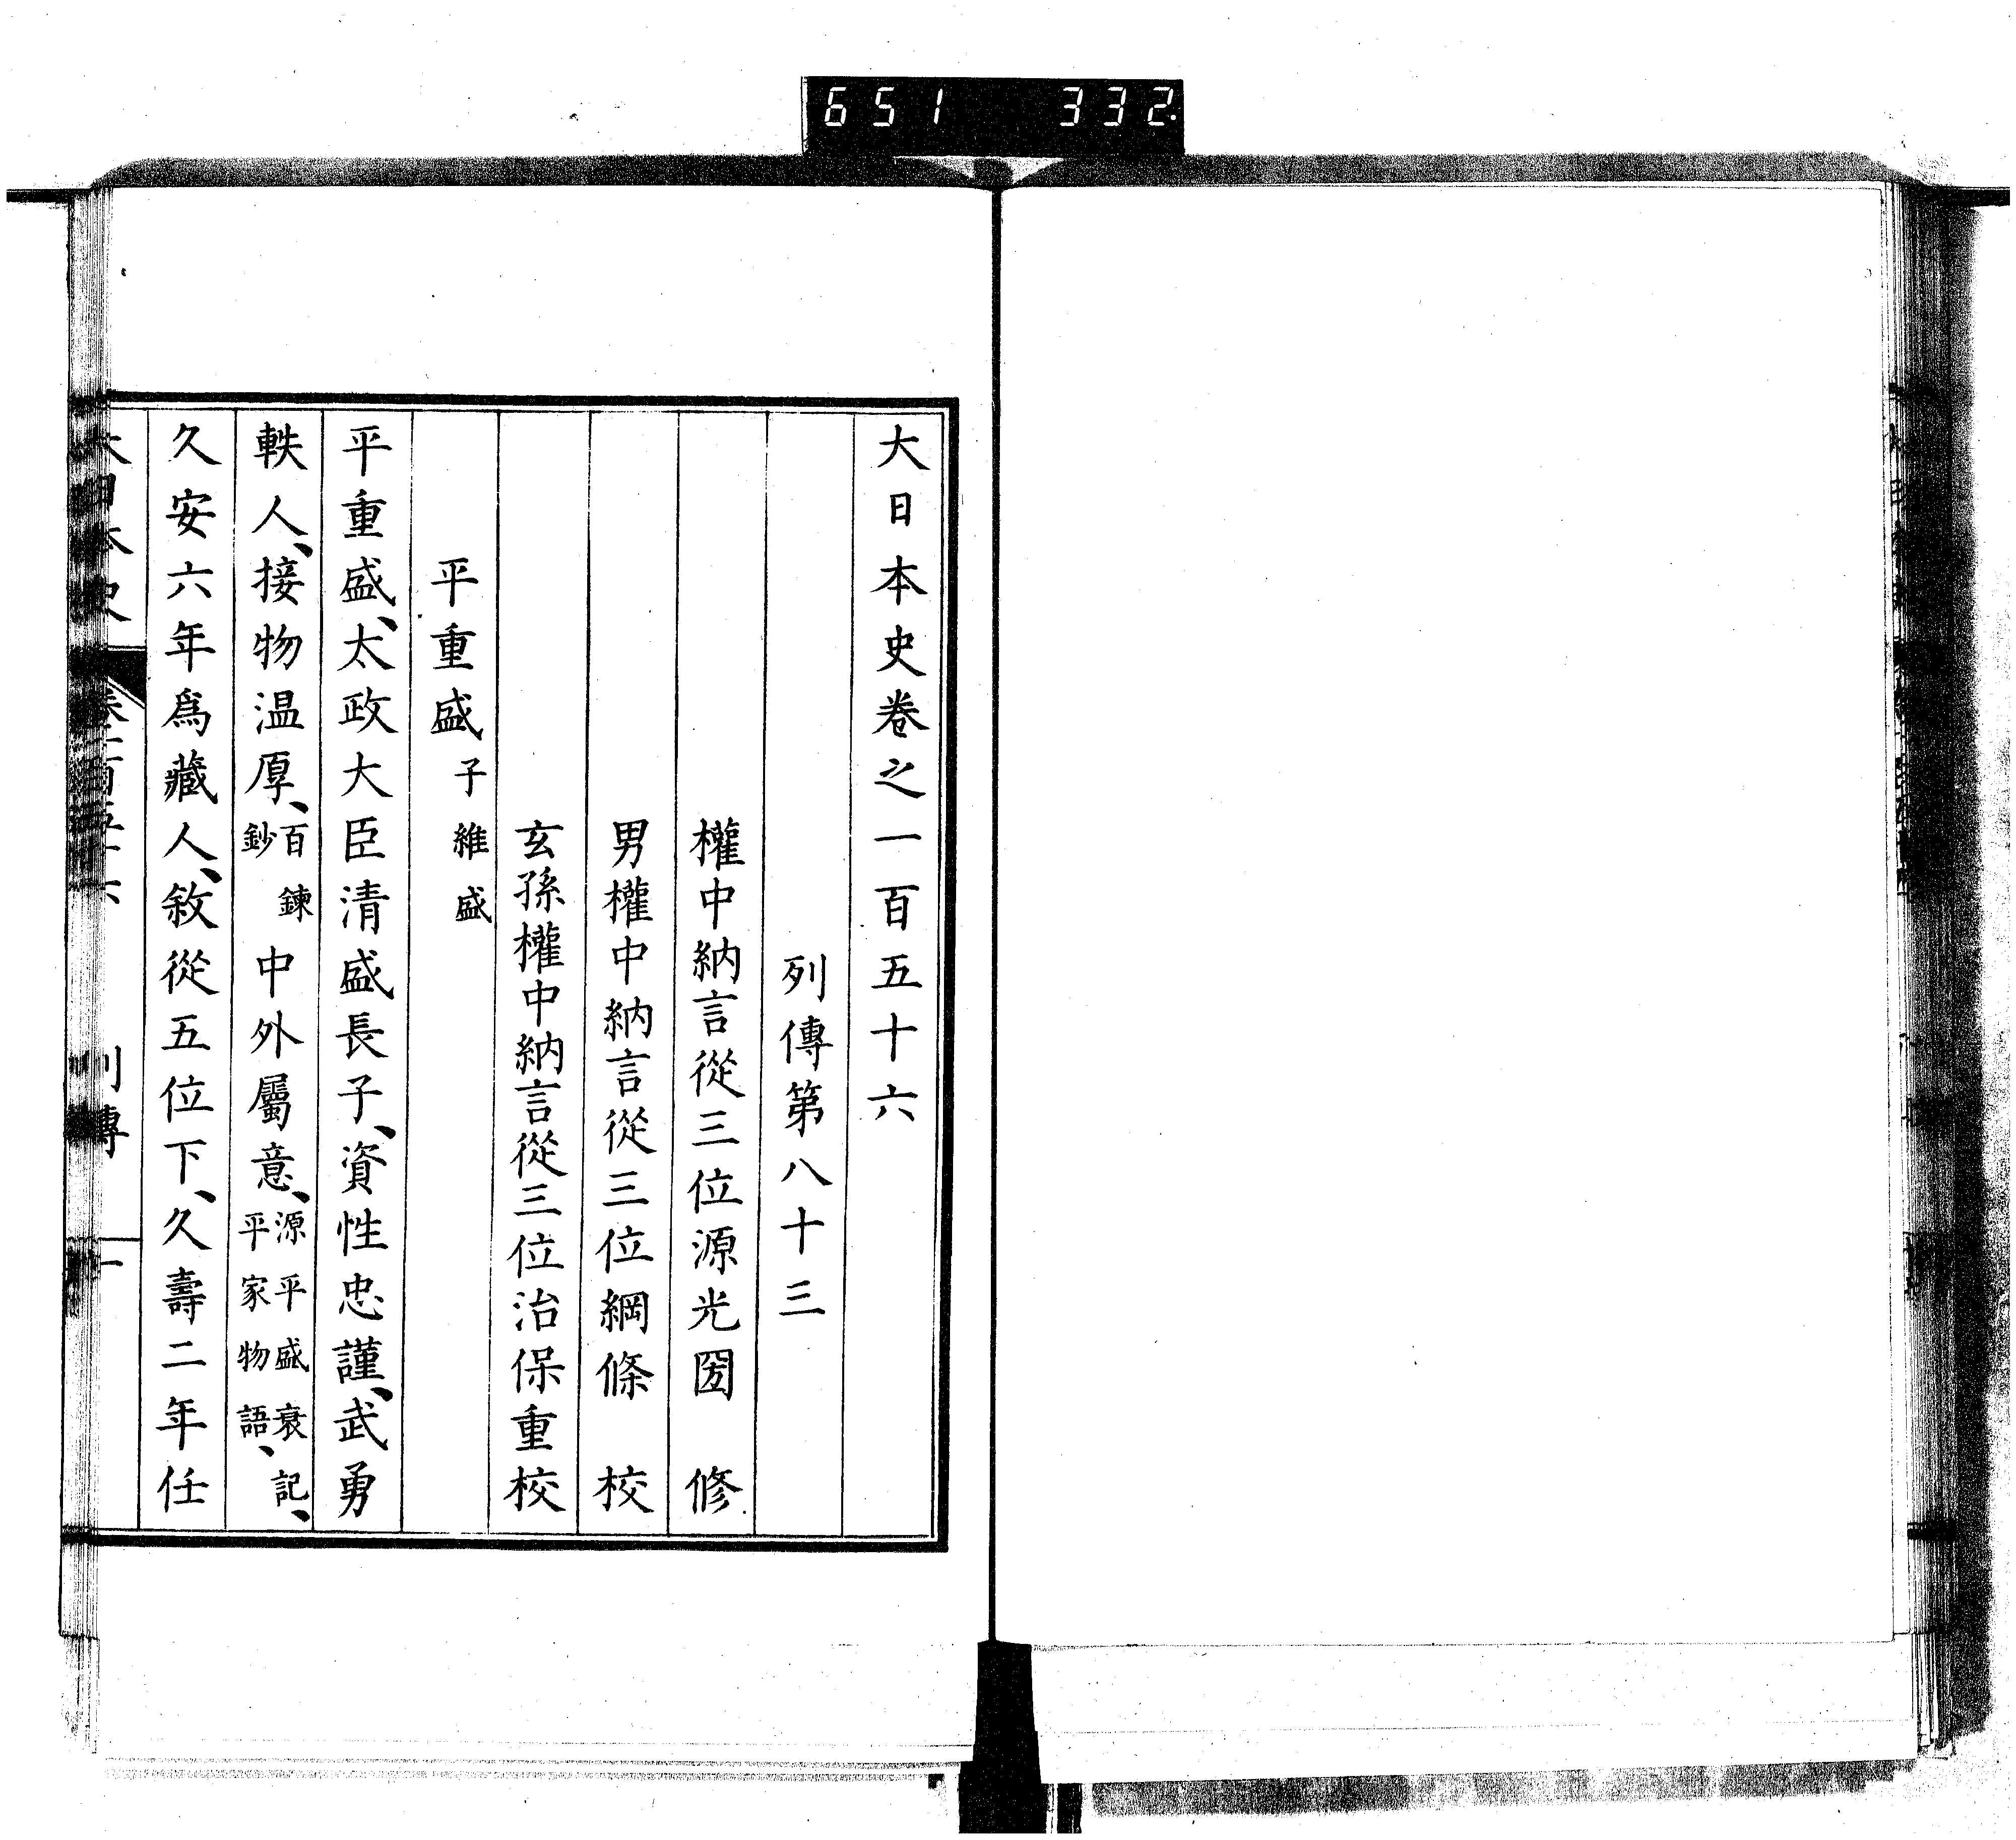 651 332
大日本史卷之一百五十六
列傳第八十三
權中納言從三位源光圀 修
男權中納言從三位綱條 校
玄孫權中納言從三位治保重校
平重盛 子維盛
平重盛、太政大臣清盛長子、資性忠謹、武勇
軼人、接物温厚、百鍊鈔中外屬意、源平盛衰記、平家物語、
久安六年爲藏人、敘從五位下、久壽二年任
大日本史 卷一百五十六 列傳 一